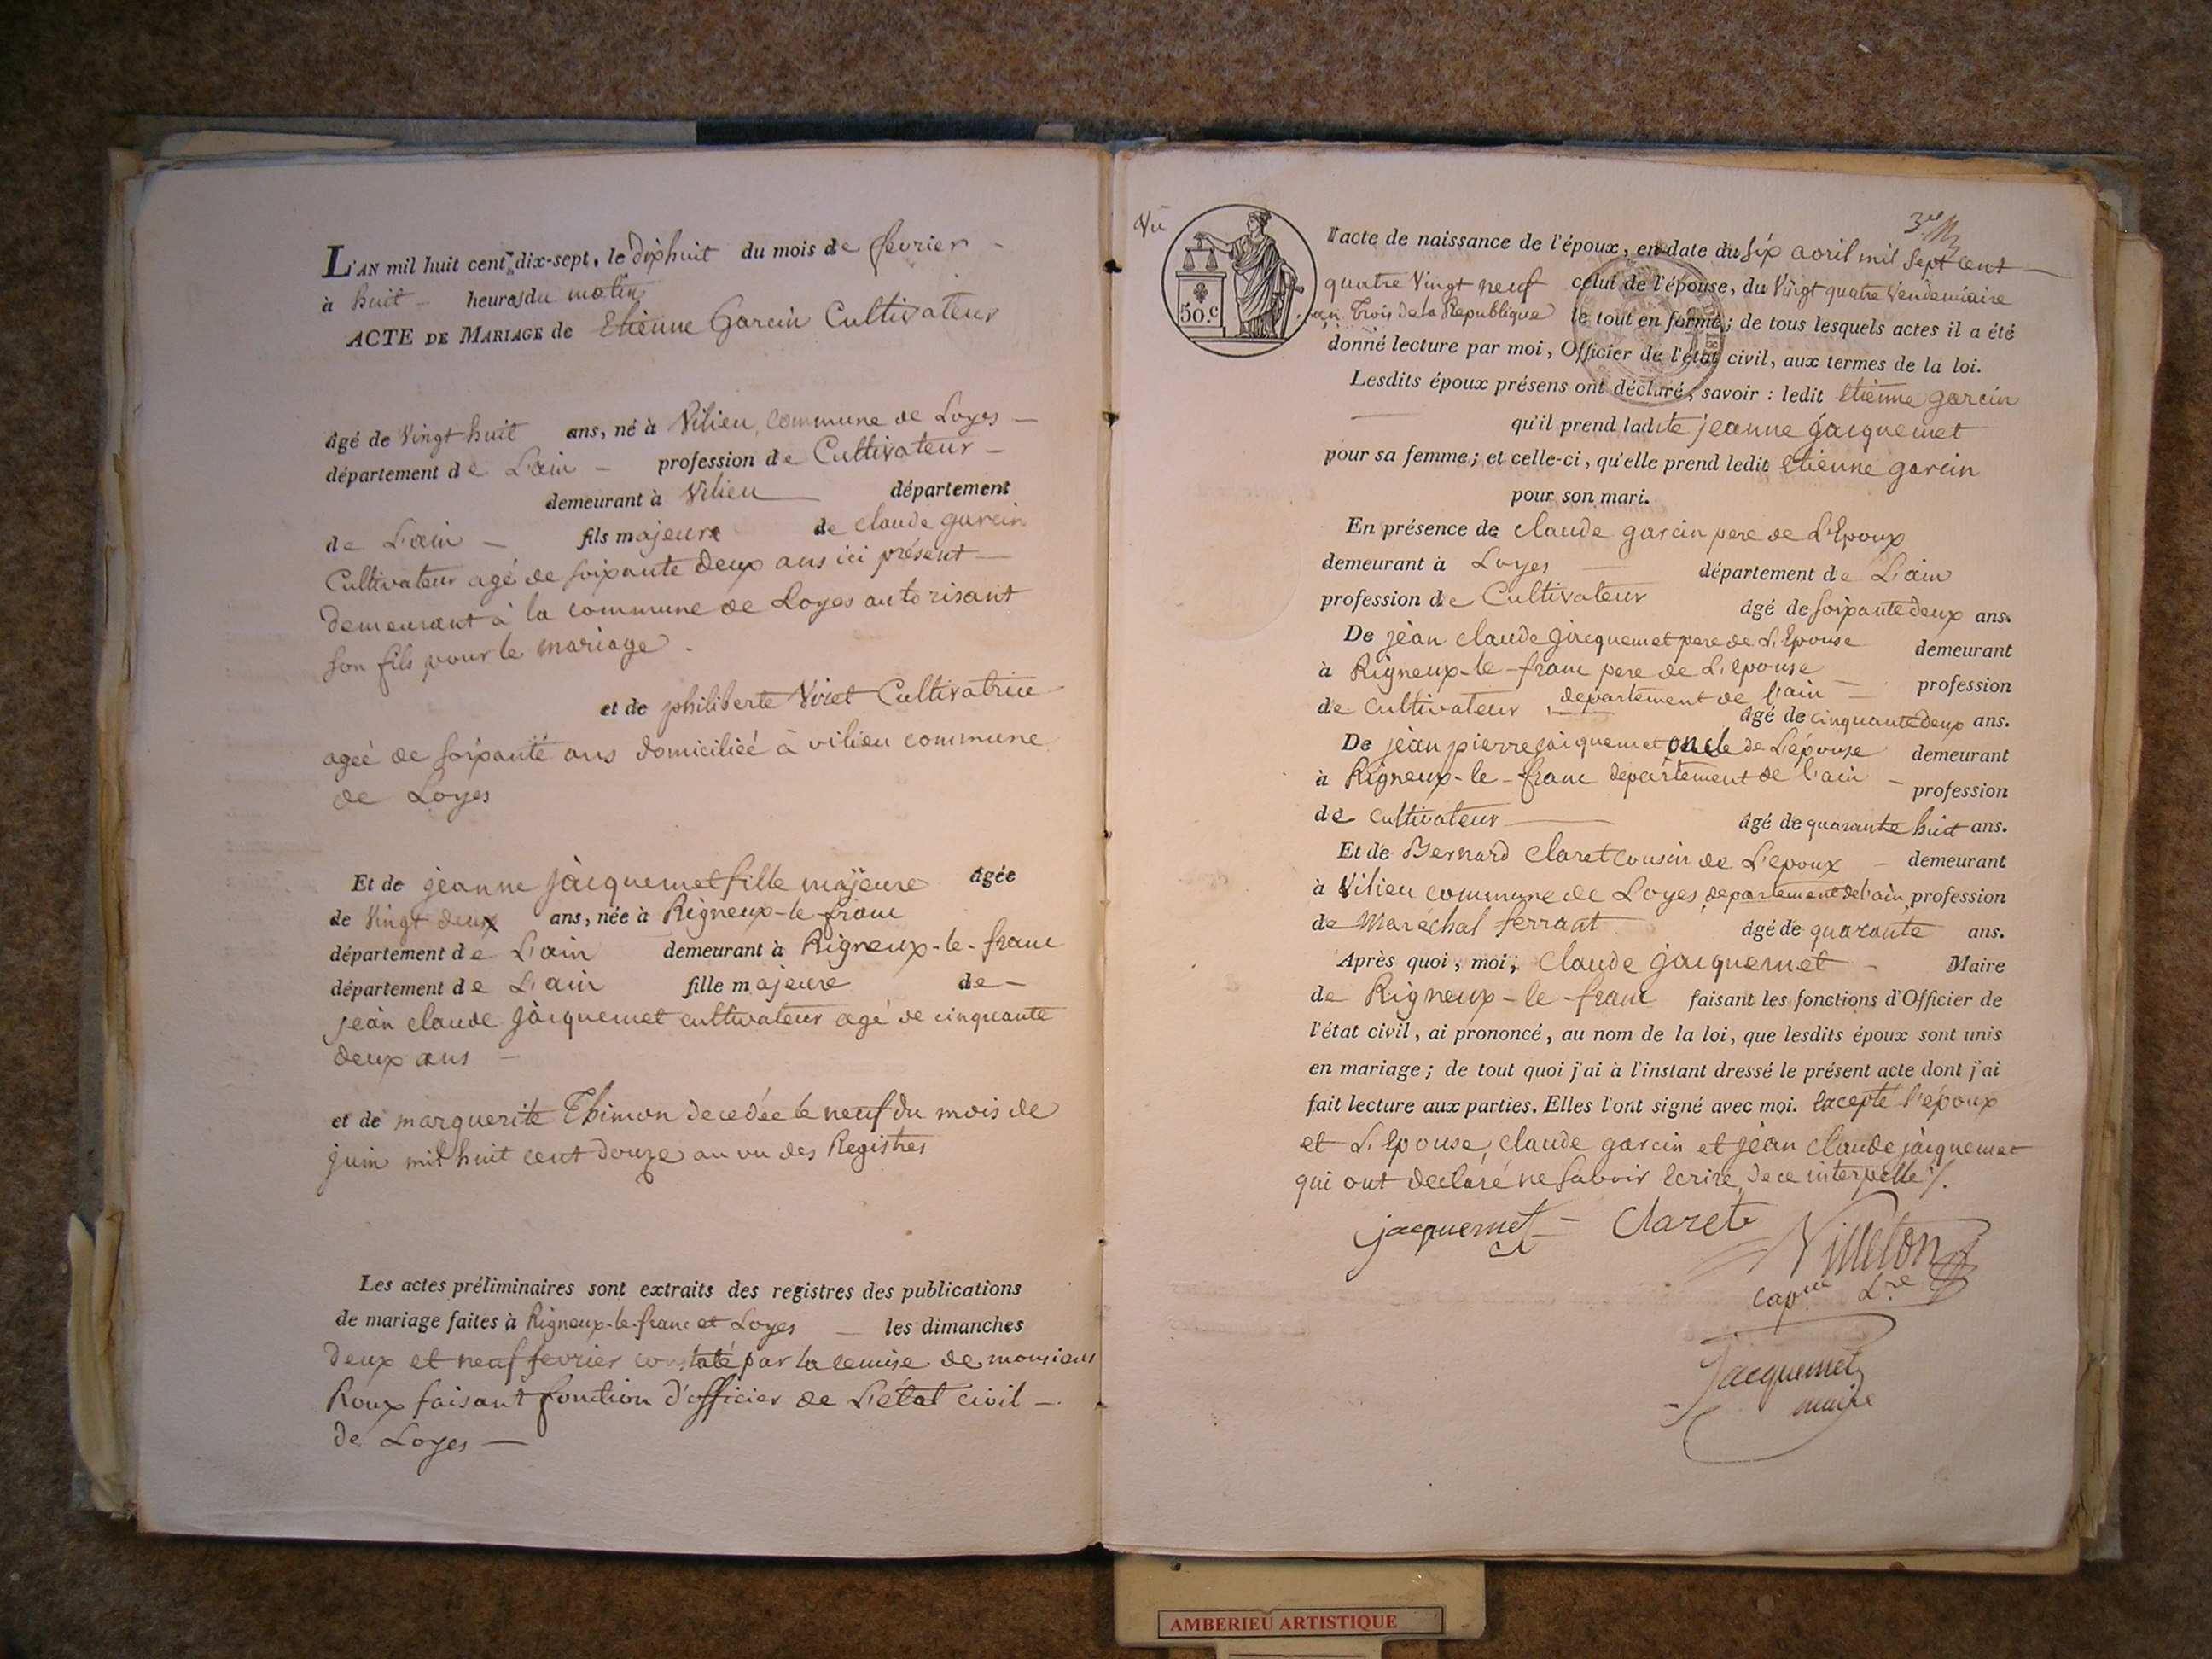 L'AN mil huit cent dix-sept, le dixhuit du mois de fevrier -
à huit - heures du matin
ACTE DE MARIAGE de Etienne Garcin Cultivateur
âgé de Vingt huit ans, né à Vilieu, commune de Loyes -
département de L'ain - profession de Cultivateur -
demeurant à Vilieu département
de L'ain - fils majeure de claude garcin
Cultivateur agé de soixante deux ans ici présent -
demeurant à la commune de Loyes autorisant
son fils pour le mariage.
et de philiberte Viret Cultivatrice
ageé de soixante ans domiciliéé à vilieu commune
de Loyes
Et de jeanne jàcquemet fille majeure âgée
de Vingt deux ans, née à Rigneux-le-franc
département de L'ain demeurant à Rigneux-le-franc
département de L'ain fille majeure de -
jeàn claude jàcquemet cultivateur agé de cinquante
deux ans -
et de marguerite Thimon decedée le neuf du mois de
juin mil huit cent douze au vu des Registres
Les actes préliminaires sont extraits des registres des publications
de mariage faites à Rigneux-le-franc et Loyes - les dimanches
deux et neuf fevrier constaté par la remise de monsieur
Roux faisant fonction d'officier de L'état civil -
de Loyes -
Vu
3.e
l'acte de naissance de l'époux, en date du six avril mil sept cent -
quatre Vingt neuf celui de l'épouse, du Vingt quatre Vendemiaire
50.c an Trois de la Republique le tout en forme; de tous lesquels actes il a été
donné lecture par moi, Officier de l'état civil, aux termes de la loi.
Lesdits époux présens ont déclaré, savoir : ledit Etienne garcin
qu'il prend ladite jeanne jàcquemet
pour sa femme; et celle-ci, qu'elle prend ledit etienne garcin
pour son mari.
En présence de claude garcin pere de L'Epoux
demeurant à Loyes département de L'ain
profession de Cultivateur âgé de soixante deux ans.
De jeàn claude jàcquemet pere de L'Epouse demeurant
à Rigneux-le-franc pere de L'epouse profession
de cultivateur, departement de l'ain - âgé de cinquante deux ans.
De jeàn pierre jàcquemet oncle de L'épouse demeurant
à Rigneux-le-franc departement de l'ain - profession
de cultivateur âgé de quarante huit ans.
Et de Bernard Claret cousin de L'epoux - demeurant
à Vilieu commune de Loyes, departement de l'ain, profession
de Maréchal ferrant âgé de quarante ans.
Après quoi, moi, Claude jàcquemet - Maire
de Rigneux-le-franc faisant les fonctions d'Officier de
l'état civil, ai prononcé, au nom de la loi, que lesdits époux sont unis
en mariage; de tout quoi j'ai à l'instant dressé le présent acte dont j'ai
fait lecture aux parties. Elles l'ont signé avec moi. Excepté l'époux
et L'Epouse, claude garcin et jeàn claude jàcquemet
qui ont declaré ne savoir Ecrire, de ce interpellé ./.
jacquemet - Claret
Villeton
capne Lre
Jacquemet
maire
AMBERIEU ARTISTIQUE